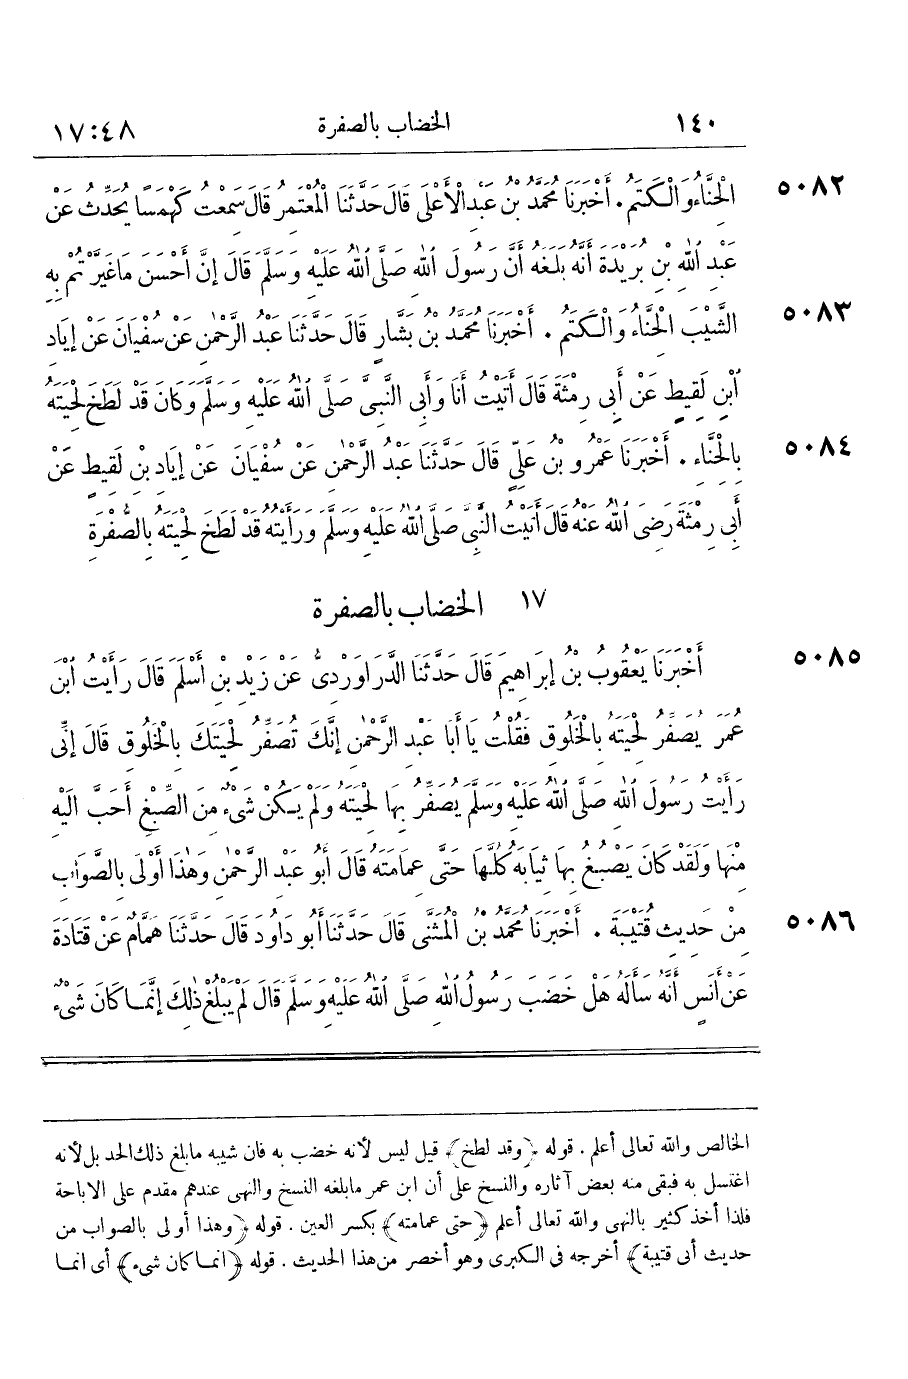 ١٤٠ الخضاب بالصفرة ١٧:٤٨
٥٠٨٢ الْحِنَّاءُ وَالْكَتَمُ . أَخْبَرَنَا مُحَمَّدُ بْنُ عَبْدِ الْأَعْلَى قَالَ حَدَّثَنَا الْمُعْتَمِرُ قَالَ سَمِعْتُ كَهْمَسًا يُحَدِّثُ عَنْ
عَبْدِ اللهِ بْنِ بُرَيْدَةَ أَنَّهُ بَلَغَهُ أَنَّ رَسُولَ اللهِ صَلَّى اللهُ عَلَيْهِ وَسَلَّمَ قَالَ إِنَّ أَحْسَنَ مَا غَيَّرْتُمْ بِهِ
٥٠٨٣ الشَّيْبَ الْحِنَّاءُ وَالْكَتَمُ . أَخْبَرَنَا مُحَمَّدُ بْنُ بَشَّارٍ قَالَ حَدَّثَنَا عَبْدُ الرَّحْمٰنِ عَنْ سُفْيَانَ عَنْ إِيَادِ
ابْنِ لَقِيطٍ عَنْ أَبِى رِمْثَةَ قَالَ أَتَيْتُ أَنَا وَأَبِى النَّبِىَّ صَلَّى اللهُ عَلَيْهِ وَسَلَّمَ وَكَانَ قَدْ لَطَخَ لِحْيَتَهُ
٥٠٨٤ بِالْحِنَّاءِ . أَخْبَرَنَا عَمْرُو بْنُ عَلِىٍّ قَالَ حَدَّثَنَا عَبْدُ الرَّحْمٰنِ عَنْ سُفْيَانَ عَنْ إِيَادِ بْنِ لَقِيطٍ عَنْ
أَبِى رِمْثَةَ رَضِىَ اللهُ عَنْهُ قَالَ أَتَيْتُ النَّبِىَّ صَلَّى اللهُ عَلَيْهِ وَسَلَّمَ وَرَأَيْتُهُ قَدْ لَطَخَ لِحْيَتَهُ بِالصُّفْرَةِ
١٧ الخضاب بالصفرة
٥٠٨٥ أَخْبَرَنَا يَعْقُوبُ بْنُ إِبْرَاهِيمَ قَالَ حَدَّثَنَا الدَّرَاوَرْدِىُّ عَنْ زَيْدِ بْنِ أَسْلَمَ قَالَ رَأَيْتُ ابْنَ
عُمَرَ يُصَفِّرُ لِحْيَتَهُ بِالْخَلُوقِ فَقُلْتُ يَا أَبَا عَبْدِ الرَّحْمٰنِ إِنَّكَ تُصَفِّرُ لِحْيَتَكَ بِالْخَلُوقِ قَالَ إِنِّى
رَأَيْتُ رَسُولَ اللهِ صَلَّى اللهُ عَلَيْهِ وَسَلَّمَ يُصَفِّرُ بِهَا لِحْيَتَهُ وَلَمْ يَكُنْ شَىْءٌ مِنَ الصِّبْغِ أَحَبَّ إِلَيْهِ
مِنْهَا وَلَقَدْ كَانَ يَصْبُغُ بِهَا ثِيَابَهُ كُلَّهَا حَتَّى عِمَامَتَهُ قَالَ أَبُو عَبْدِ الرَّحْمٰنِ وَهٰذَا أَوْلَى بِالصَّوَابِ
٥٠٨٦ مِنْ حَدِيثِ قُتَيْبَةَ . أَخْبَرَنَا مُحَمَّدُ بْنُ الْمُثَنَّى قَالَ حَدَّثَنَا أَبُو دَاوُدَ قَالَ حَدَّثَنَا هَمَّامٌ عَنْ قَتَادَةَ
عَنْ أَنَسٍ أَنَّهُ سَأَلَهُ هَلْ خَضَبَ رَسُولُ اللهِ صَلَّى اللهُ عَلَيْهِ وَسَلَّمَ قَالَ لَمْ يَبْلُغْ ذٰلِكَ إِنَّمَا كَانَ شَىْءٌ
الخالص والله تعالى أعلم . قوله ﴿وقد لطخ﴾ قيل ليس لأنه خضب به فان شيبه مابلغ ذلك الحد بل لأنه
اغتسل به فبقى منه بعض آثاره والنسخ على أن ابن عمر مابلغه النسخ والنهى عندهم مقدم على الاباحة
فلذا أخذ كثير بالنهى والله تعالى أعلم ﴿حتى عمامته﴾ بكسر العين . قوله ﴿وهذا أولى بالصواب من
حديث أبى قتيبة﴾ أخرجه فى الكبرى وهو أخصر من هذا الحديث . قوله ﴿انما كان شىء﴾ أى انما